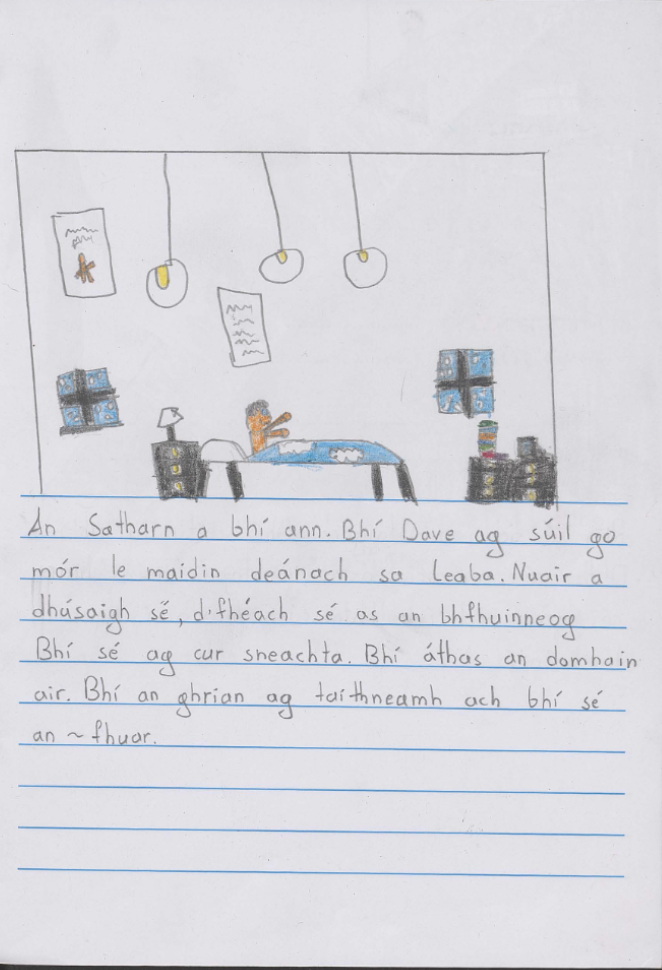 An Satharn a bhí ann. Bhí Dave ag súil go
mór le maidin deánach sa leaba. Nuair a
dhúsaigh sé, d'fhéach sé as an bhfhuinneog
Bhí sé ag cur sneachta. Bhí áthas an domhain
air. Bhí an ghrian ag taithneamh ach bhí sé
an ~ fhuar.